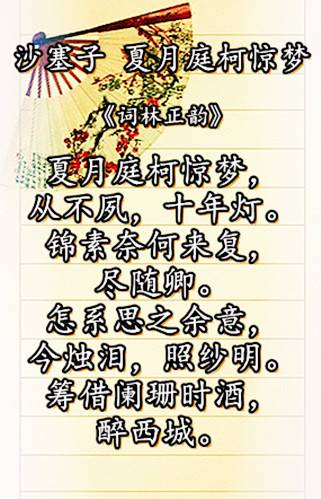 沙塞子 夏月庭柯惊梦
《词林正韵》
夏月庭柯惊梦，
从不夙，十年灯。
锦素奈何来复，
尽随卿。
怎系思之余意，
今烛泪，照纱明。
筹借阑珊时酒，
醉西城。